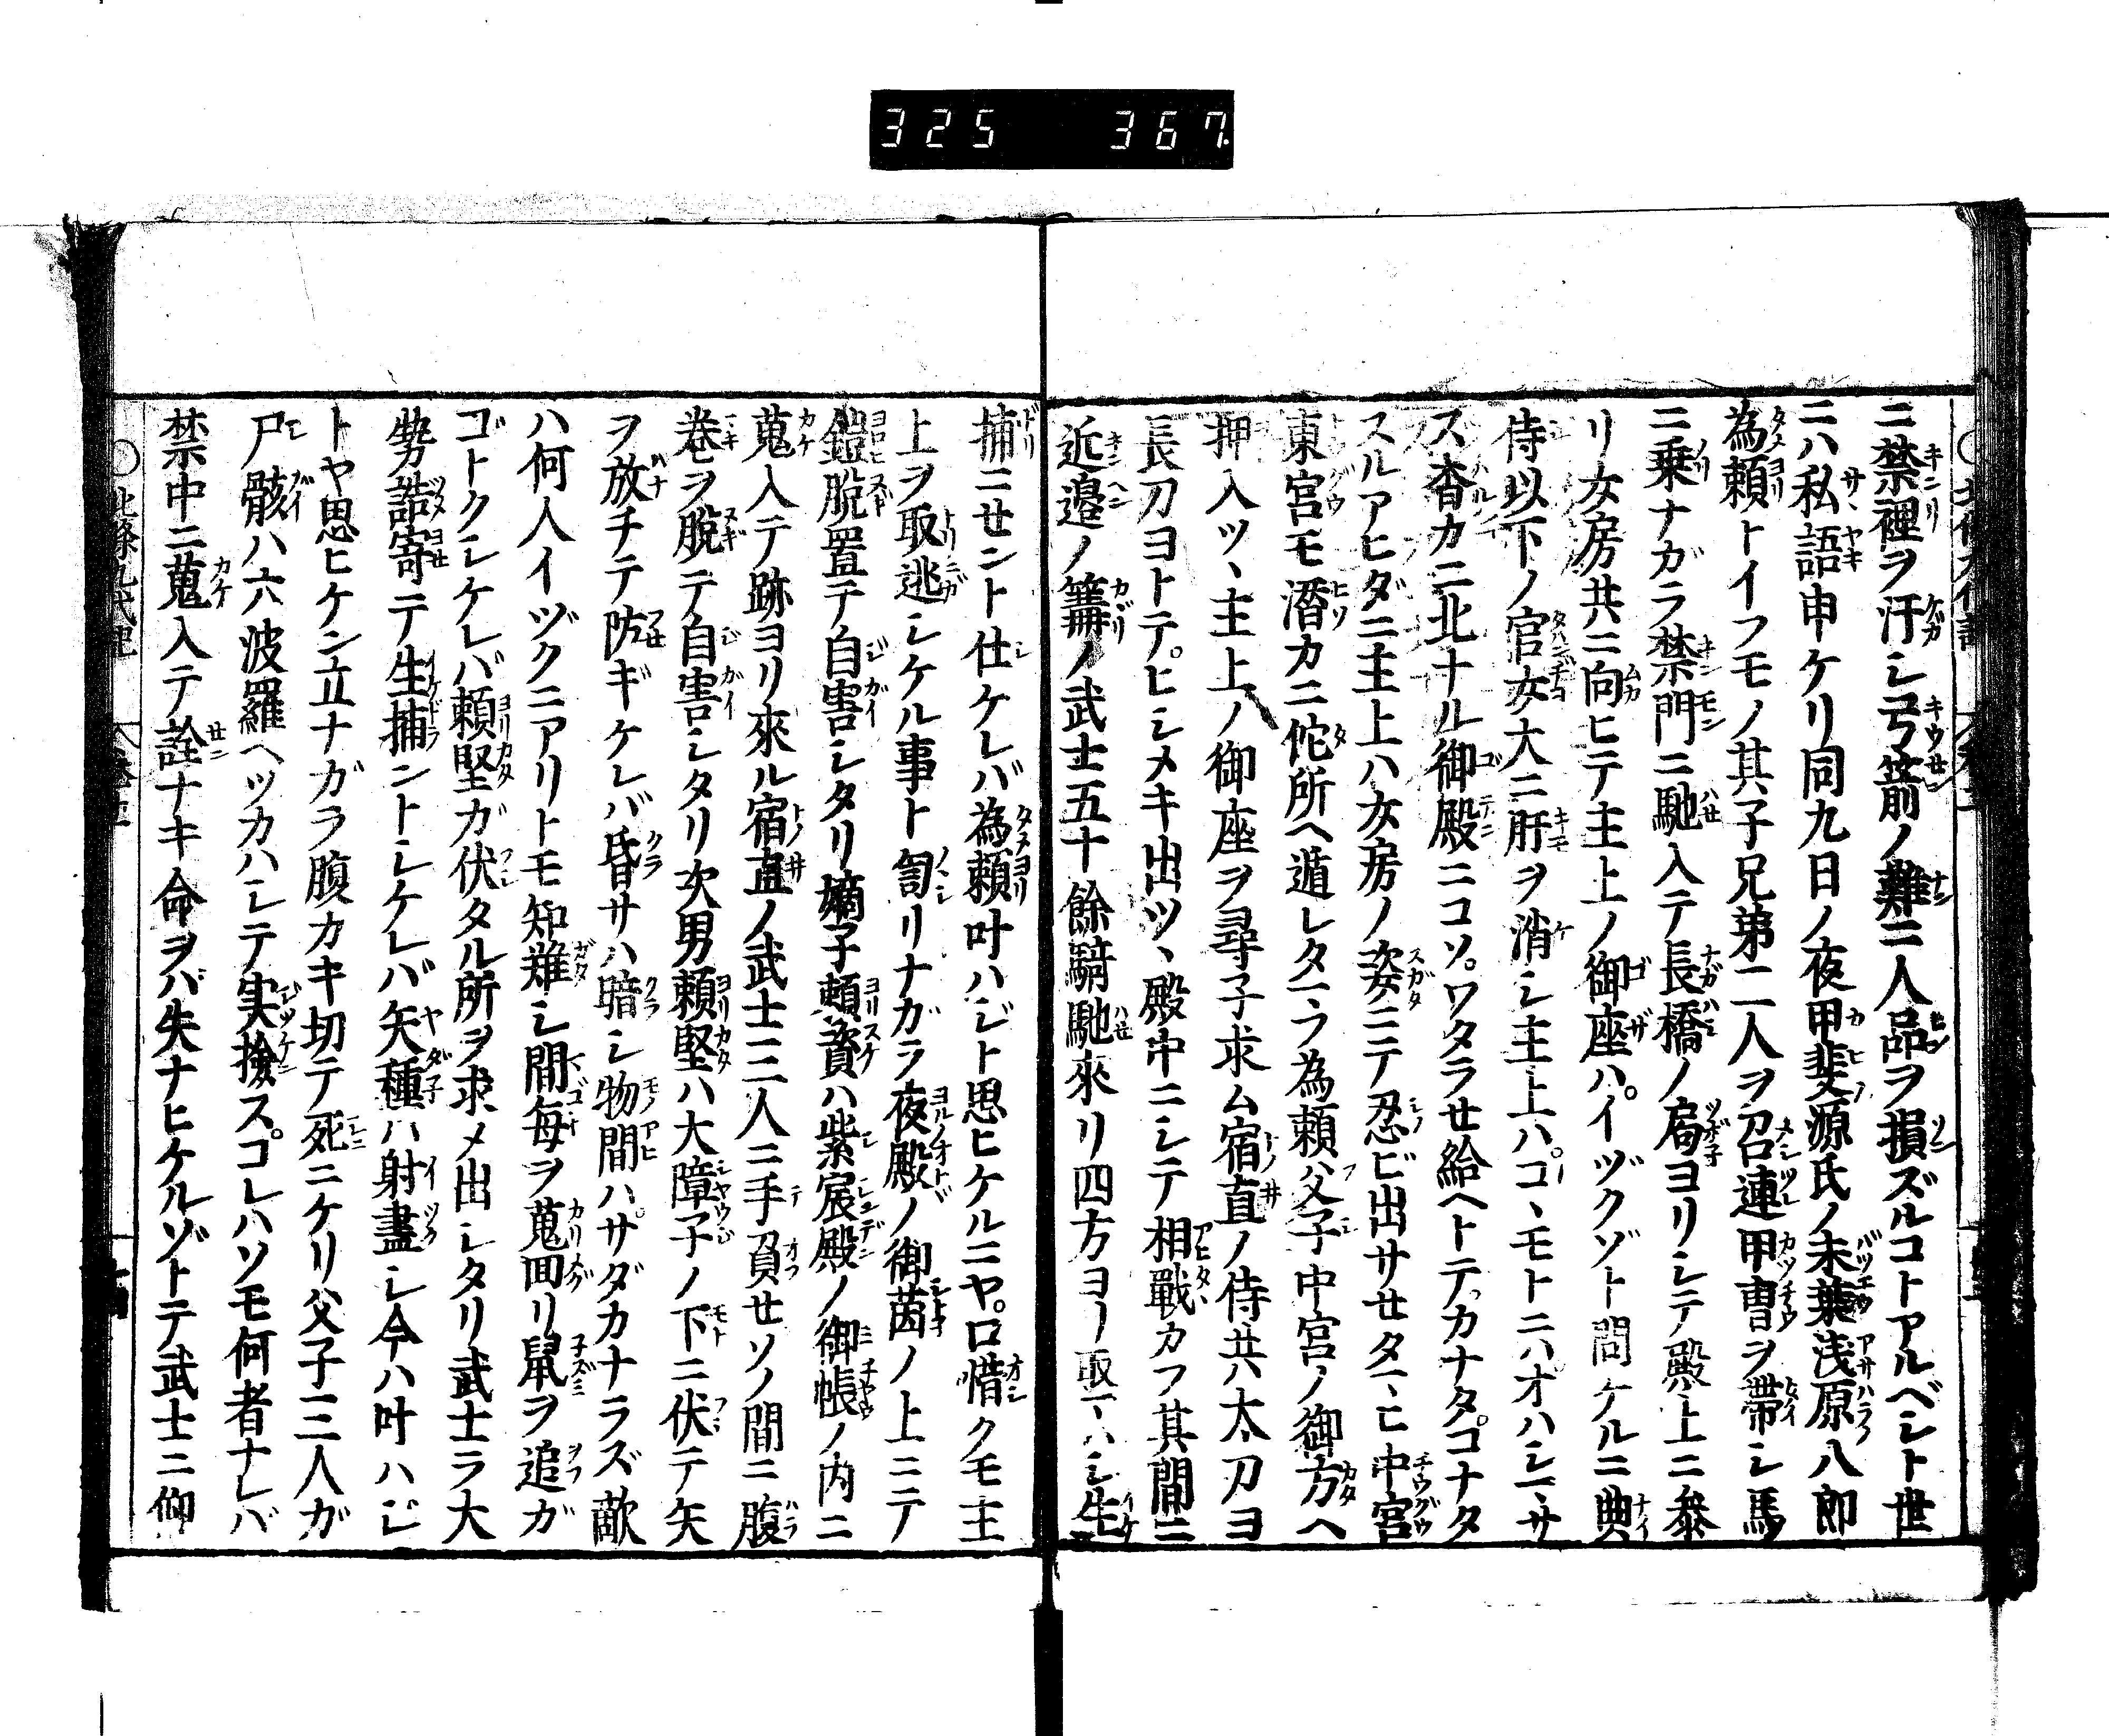 325 367
ニ禁裡ヲ汗シ弓箭ノ難ニ人品ヲ損ズルコトアルベシト世
ニハ私語申ケリ同九日ノ夜甲斐源氏ノ末葉浅原八郎
為頼トイフモノ其子兄弟二人ヲ召連甲冑ヲ帯シ馬
ニ乗ナガラ禁門ニ馳入テ長橋ノ局ヨリシテ殿上ニ參
リ女房共ニ向ヒテ主上ノ御座ハイヅクゾト問ケルニ典
侍以下ノ官女大ニ肝ヲ消シ主上ハコヽモトニハオハシマサ
ス杳カニ北ナル御殿ニコソワタラせ給ヘトテカナタコナタ
スルアヒダニ主上ハ女房ノ姿ニテ忍ビ出サせタマヒ中宮
東宮モ潛カニ佗所ヘ遁レタマフ為頼父子中宮ノ御方ヘ
押入ツヽ主上ノ御座ヲ尋子求ム宿直ノ侍共太刀ヨ
長刀ヨトテヒシメキ出ツヽ殿中ニシテ相戰カフ其間ニ
近邉ノ篝ノ武士五十餘騎馳來リ四方ヨリ取マハシ生
捕ニせント仕ケレバ為頼叶ハジト思ヒケルニヤ口惜クモ主
上ヲ取逃シケル事ト訇リナガラ夜殿ノ御茵ノ上ニテ
鎧脱置テ自害シタリ嫡子頼資ハ紫宸殿ノ御帳ノ内ニ
蒐入テ跡ヨリ來ル宿直ノ武士三人ニ手負せソノ間ニ腹
巻ヲ脱テ自害シタリ次男頼堅ハ大障子ノ下ニ伏テ矢
ヲ放チテ防ギケレバ昏サハ暗シ物間ハサダカナラズ敵
ハ何人イヅクニアリトモ知難シ間毎ヲ蒐囬リ鼠ヲ追ガ
ゴトクシケレバ頼堅ガ伏タル所ヲ求メ出シタリ武士ラ大
勢詰寄テ生捕ントシケレバ矢種ハ射盡シ今ハ叶ハジ
トヤ思ヒケン立ナガラ腹カキ切テ死ニケリ父子三人ガ
尸骸ハ六波羅ヘツカハシテ実撿スコレハソモ何者ナレバ
禁中ニ蒐入テ詮ナキ命ヲバ失ナヒケルゾトテ武士ニ仰
〇北條九代記